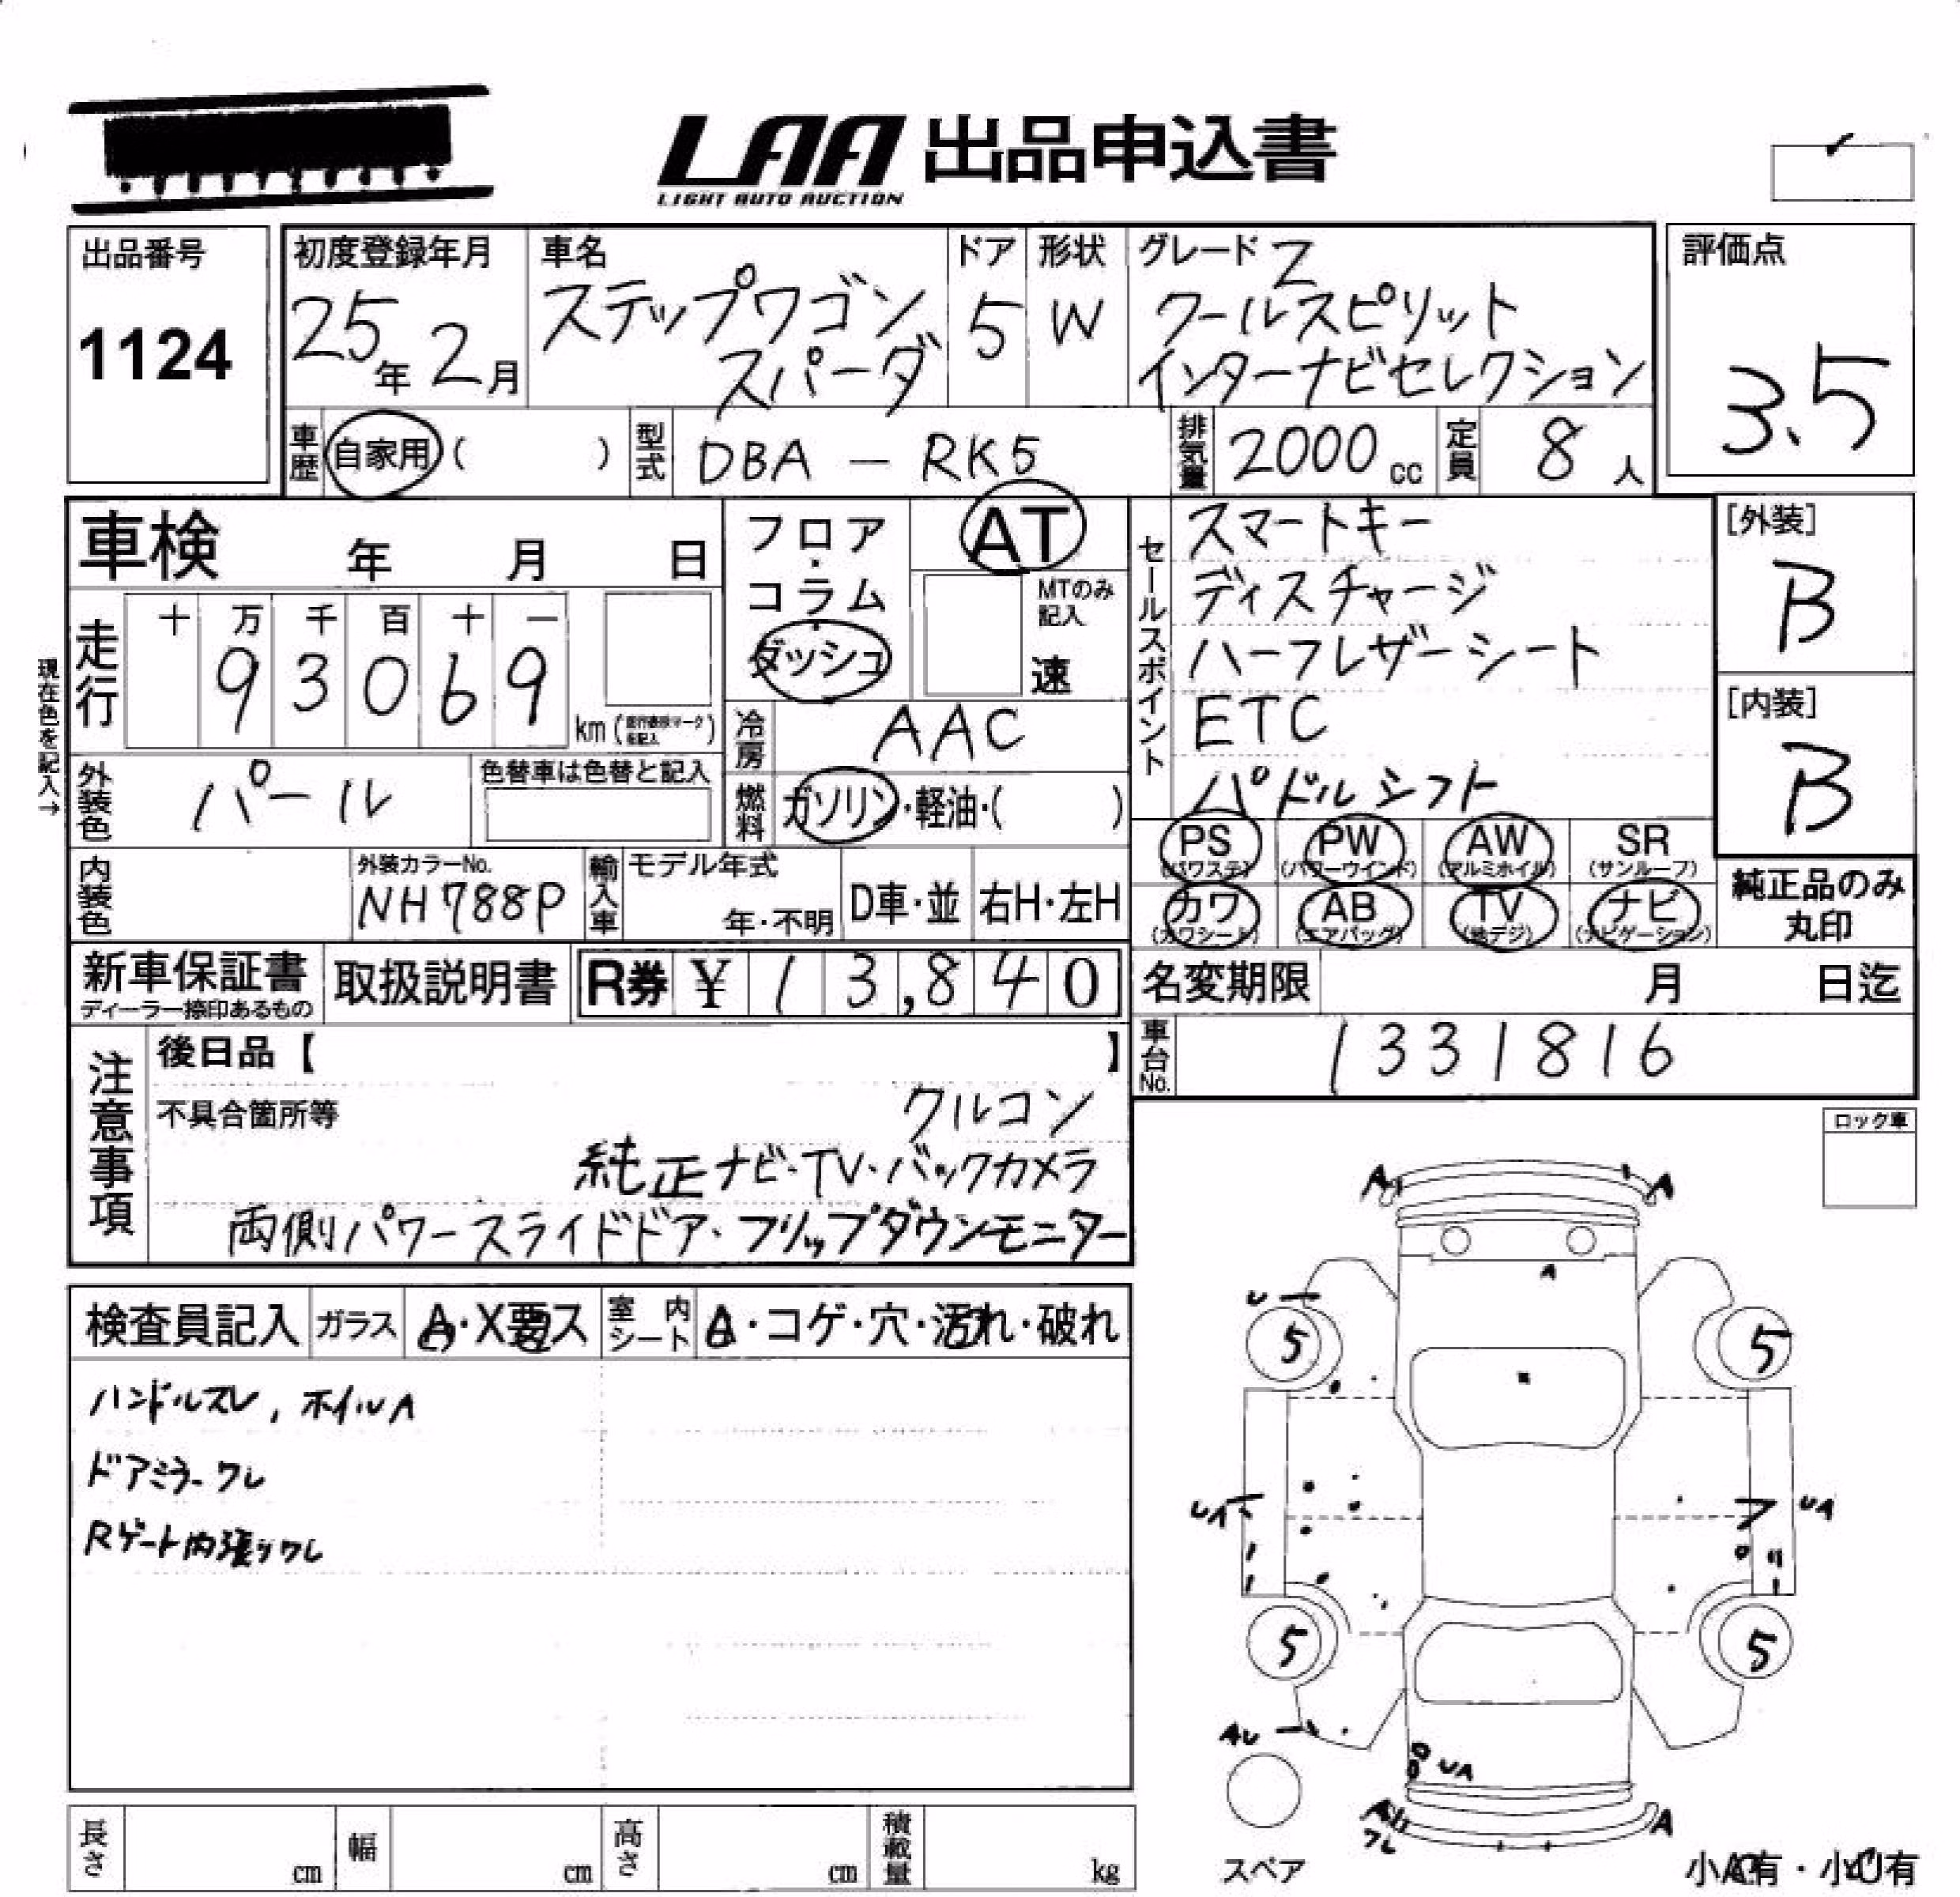 LAA 出品申込書
LIGHT AUTO AUCTION
出品番号
1124
初度登録年月
25年 2月
車名
ステップワゴン
スパーダ
ドア
5
形状
W
グレード Z
クールスピリット
インターナビセレクション
評価点
3.5
車歴 自家用 ( )
型式 DBA - RK5
排気量 2000 cc
定員 8 人
車検 年 月 日
フロア・コラム・ダッシュ
AT
MTのみ記入
速
セールスポイント
スマートキー
ディスチャージ
ハーフレザーシート
ETC
パドルシフト
[外装]
B
[内装]
B
現在色を記入→
走行
十 万 千 百 十 一
9 3 0 6 9
km (走行表示マーク を記入)
冷房 AAC
外装色 パール
色替車は色替と記入
燃料 ガソリン・軽油・( )
PS (パワステ)
PW (パワーウインド)
AW (アルミホイル)
SR (サンルーフ)
カワ (カワシート)
AB (エアバッグ)
TV (地デジ)
ナビ (ナビゲーション)
純正品のみ
丸印
内装色
外装カラーNo.
NH788P
輸入車
モデル年式
年・不明
D車・並
右H・左H
新車保証書
ディーラー捺印あるもの
取扱説明書
R券 ¥ 13,840
名変期限 月 日迄
車台No. 1331816
注意事項
後日品【 】
不具合箇所等
クルコン
純正ナビ・TV・バックカメラ
両側パワースライドドア・フリップダウンモニター
ロック車
検査員記入
ガラス A・X要ス
室内シート A・コゲ・穴・汚れ・破れ
ハンドルスレ, ホイルA
ドアミラーワレ
Rゲート内張りワレ
A A
A
U
5 5
UA UA
5 5
AU
UA
A
ワレ
A
スペア
小A有・小U有
長さ cm
幅 cm
高さ cm
積載量 kg